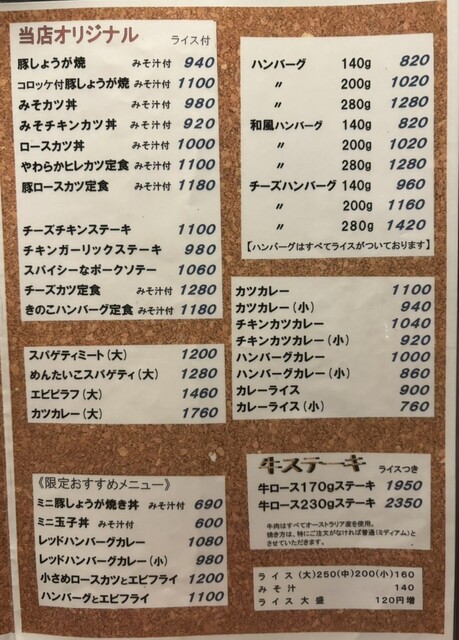 当店オリジナル ライス付
豚しょうが焼 みそ汁付 940
コロッケ付豚しょうが焼 みそ汁付 1100
みそカツ丼 みそ汁付 980
みそチキンカツ丼 みそ汁付 920
ロースカツ丼 みそ汁付 1000
やわらかヒレカツ定食 みそ汁付 1100
豚ロースカツ定食 みそ汁付 1180
チーズチキンステーキ 1100
チキンガーリックステーキ 980
スパイシーなポークソテー 1060
チーズカツ定食 みそ汁付 1280
きのこハンバーグ定食 みそ汁付 1180
スパゲティミート(大) 1200
めんたいこスパゲティ(大) 1280
エビピラフ(大) 1460
カツカレー(大) 1760
《限定おすすめメニュー》
ミニ豚しょうが焼き丼 みそ汁付 690
ミニ玉子丼 みそ汁付 600
レッドハンバーグカレー 1080
レッドハンバーグカレー(小) 980
小さめロースカツとエビフライ 1200
ハンバーグとエビフライ 1100
ハンバーグ 140g 820
〃 200g 1020
〃 280g 1280
和風ハンバーグ 140g 820
〃 200g 1020
〃 280g 1280
チーズハンバーグ 140g 960
〃 200g 1160
〃 280g 1420
【ハンバーグはすべてライスがついております】
カツカレー 1100
カツカレー(小) 940
チキンカツカレー 1040
チキンカツカレー(小) 920
ハンバーグカレー 1000
ハンバーグカレー(小) 860
カレーライス 900
カレーライス(小) 760
牛ステーキ ライスつき
牛ロース170gステーキ 1950
牛ロース230gステーキ 2350
牛肉はすべてオーストラリア産を使用。
焼き方は、特にご注文がなければ普通(ミディアム)と
させていただきます。
ライス(大)250(中)200(小)160
みそ汁 140
ライス大盛 120円増